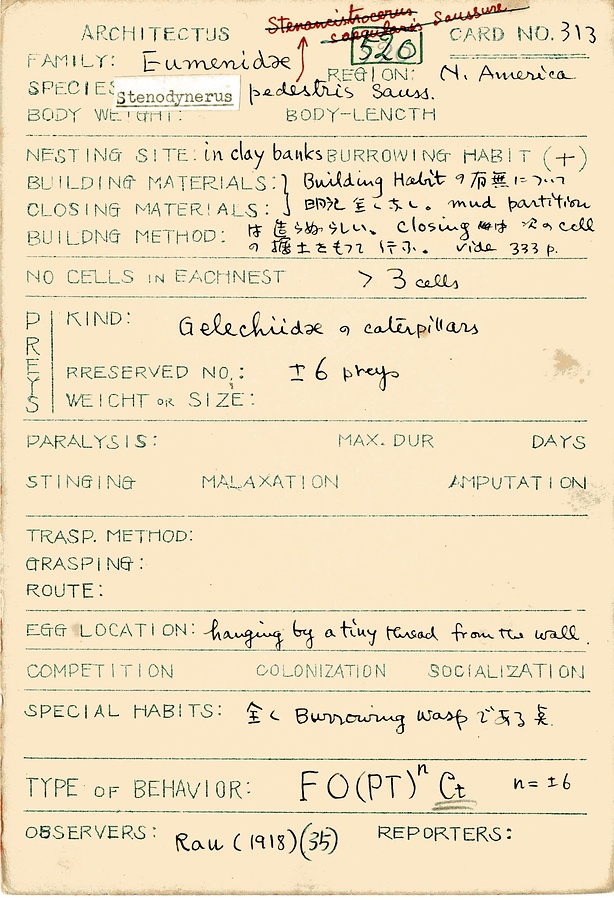 Stenancistrocerus
Saussure.
ARCHITECTUS 520 CARD NO. 313
FAMILY: Eumenidæ REGION: N. America
SPECIES Stenodynerus pedestris Sauss.
BODY WEIGHT: BODY-LENGTH
NESTING SITE: in clay banks BURROWING HABIT (+)
BUILDING MATERIALS: Building Habit の有無について
CLOSING MATERIALS: 明記全くなし。 mud partition
BUILDNG METHOD: は造らぬらしい。 Closing は次の cell
の掘土をもって行ふ。 vide 333 p.
NO CELLS IN EACHNEST > 3 cells
PREYS
KIND: Gelechiidæ の caterpillars
RRESERVED NO.: ±6 preys
WEICHT OR SIZE:
PARALYSIS: MAX. DUR DAYS
STINGING MALAXATION AMPUTATION
TRASP. METHOD:
GRASPING:
ROUTE:
EGG LOCATION: hanging by a tiny thread from the wall.
COMPETITION COLONIZATION SOCIALIZATION
SPECIAL HABITS: 全く Burrowing wasp である点.
TYPE OF BEHAVIOR: FO(PT)ⁿ Ct n=±6
OBSERVERS: Rau (1918)(35) REPORTERS: